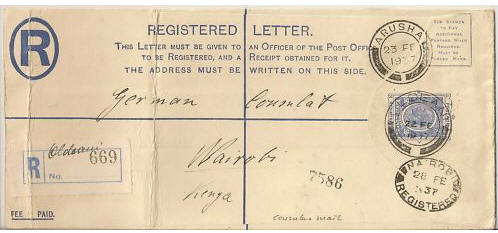 REGISTERED LETTER.
THIS LETTER MUST BE GIVEN TO AN OFFICER OF THE POST OFFICE
TO BE REGISTERED, AND A RECEIPT OBTAINED FOR IT.
THE ADDRESS MUST BE WRITTEN ON THIS SIDE.
R
ARUSHA
23 FE
1937
German Consulat
22 FE
1937
Oldeani
R No. 669
Nairobi
Kenya
7586
NAIROBI
28 FE
37
REGISTERED
FEE PAID.
consular mail